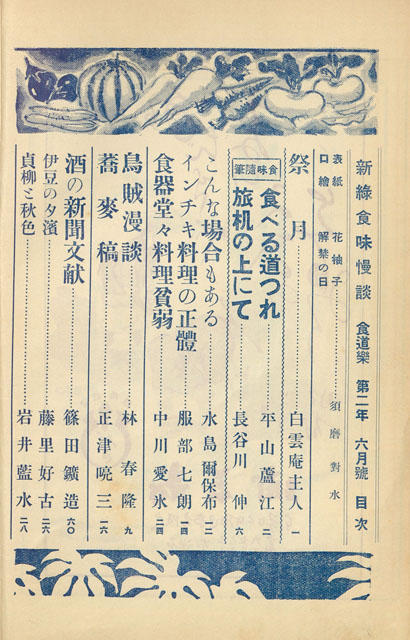 新綠食味慢談 食道樂 第二年 六月號 目次
表紙 花柚子
口繪 解禁の日 須磨對水
祭月 白雲庵主人 一
食味隨筆
食べる道つれ 平山蘆江 二
旅机の上にて 長谷川伸 六
こんな場合もある 水島爾保布 一二
インチキ料理の正體 服部七朗 一四
食器堂々料理貧弱 中川愛氷 二四
烏賊漫談 林春隆 九
蕎麥稿 正津暁三 一六
酒の新聞文献 篠田鑛造 六〇
伊豆の夕濱 藤里好古 二六
貞柳と秋色 岩井藍水 二八